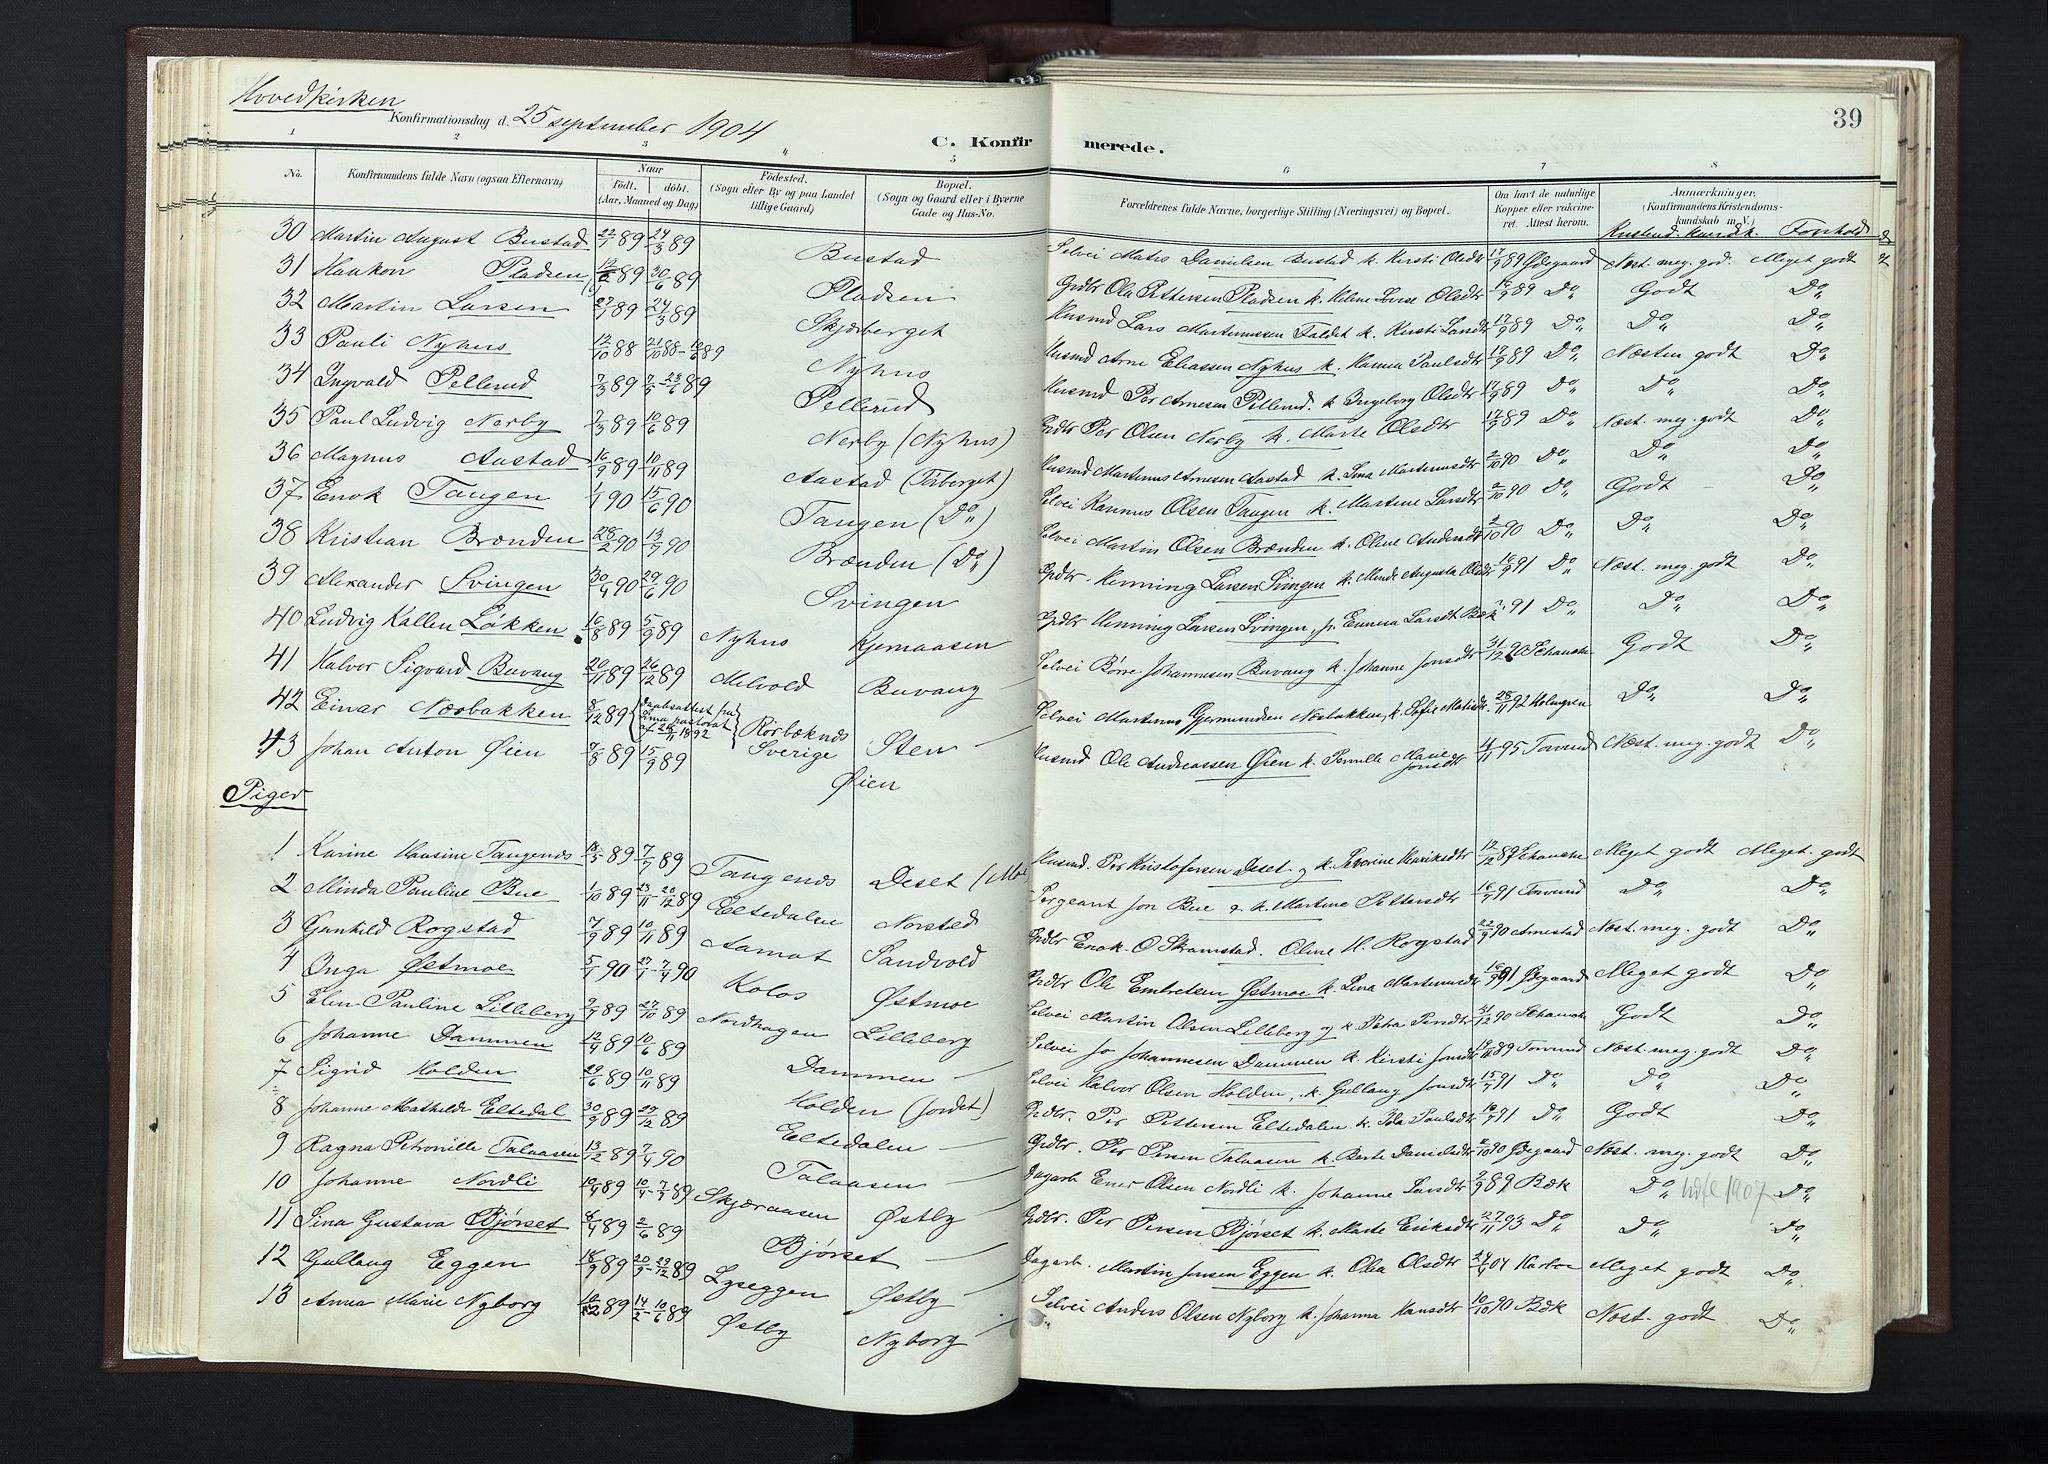 Hovedkirken
Konfirmationsdag d. 25 september 1904
C. Konfirmerede.
39
1 2 3 4 5 6 7 8
No. Konfirmandens fulde Navn (ogsaa Efternavn) Naar født. (Aar, Maaned og Dag) døbt. Fødested. (Sogn eller By og paa Landet tillige Gaard) Bopæl. (Sogn og Gaard eller i Byerne Gade og Hus-No. Forældrenes fulde Navne, borgerlige Stilling (Næringsvei) og Bopæl. Om havt de naturlige Kopper eller vaccineret. Attest herom. Anmærkninger. (Konfirmandens Kristendomskundskab m. V.)
Kristend. kundsk. Forhold
30 Martin August Bustad 22/1 89 24/3 89 Bustad Selvei Mats Danielsen Bustad k. Kersti Olsdtr 17/9 89 Ødegaard Næst. meg. god. Meget godt
31 Haakon Pladsen 89 30/6 89 Pladsen Grdbr Ole Pettersen Pladsen k. Helene Lovise Olsdtr 16/9 89 Do Godt Do
32 Martin Larsen 27/1 89 24/3 89 Skjærberget Husmd Lars Martinussen Faldet k. Kersti Larsdtr 17/9 89 Do Do Do
33 Pauli Nyhus 12/10 88 21/10 88 - 10/6 89 Nyhus Husmd Arne Eliassen Nyhus k. Hanna Paulsdtr 17/9 89 Do Næsten godt Do
34 Ingvald Pellerud 7/3 89 7/5 - 23/6 89 Pellerud Husmd Per Arnesen Pellerud k. Ingeborg Olsdtr 17/9 89 Do Do Do
35 Paul Ludvig Nerby 7/3 89 10/6 89 Nerby (Nyhus) Grdbr Per Olsen Nerby k. Marte Olsdtr 17/9 89 Do Næst. meg. godt Do
36 Magnus Aastad 16/9 89 10/11 89 Aastad (Tørberget) Husmd Martinus Arnesen Aastad k. Lina Martinusdtr 2/10 90 Do Do Do
37 Enok Tangen 1/1 90 15/6 90 Tangen (Do) Selvei Rasmus Olsen Tangen k. Martine Larsdtr 2/10 90 Do Godt Do
38 Kristian Brænden 28/2 90 13/7 90 Brænden (Do) Selvei Martin Olsen Brænden k. Oline Andersdtr 2/10 90 Do Do Do
39 Alexander Svingen 30/4 90 29/6 90 Svingen Grdbr. Henning Larsen Svingen k. Minda Augusta Olsdtr 16/9 91 Do Næst. meg. godt Do
40 Ludvig Kallen Løkken 16/8 89 5/9 89 Nyhus Kjernaasen Grdbr Henning Larsen Svingen, Emma Larsdt Bæk 91 Do Do Do
41 Halvor Sigvard Buvang 20/11 89 26/12 89 Melvold Buvang Selvei Børre Johannesen Buvang k. Johanne Jonsdtr 31/12 90 Schanche Godt Do
42 Einar Næsbakken 8/12 89 Daabsattest fra Lima pastorat af 26/11 1892 Rørbæknæs Sverige Sten Selvei Martinus Gjermundsen Næsbakken, k. Sofie 28/11 92 Holmgren Do Do
43 Johan Anton Øien 7/8 89 15/9 89 Øien Husmd Ole Andreassen Øien k. Pernille Marie Jonsdtr 4/11 95 Torsrud Næst. meg. godt Do
Piger
1 Karine Hansine Tangenæs 18/5 89 7/7 89 Tangenæs Deset (Moe Husmd. Per Kristofersen Deset og k. Severine Henriksdtr 12/12 89 Schanche Meget godt Meget godt
2 Minda Pauline Bue 1/10 89 23/11 - 20/12 89 Eltsdalen Norsted Sergeant Jon Bue & k. Martine Pettersdtr 16/9 91 Torsrud Do Do
3 Gunhild Rogstad 7/9 89 10/11 89 Aamot Sandvold Grdbr Enok O Skramstad. Oline H. Rogstad 22/9 90 Arnestad Næst. meg. godt Do
4 Inga Østmoe 5/1 90 27/1 - 7/4 90 Kolos Østmoe Grdbr Ole Embretsen Østmoe k. Lina Martinusdtr 91 Ødegaard Meget godt Do
5 Elen Pauline Lilleberg 2/9 89 27/10 89 Nordhagen Lilleberg Selvei Martin Olsen Lilleberg og k. Petra Persdtr 31/12 90 Schanche Godt Do
6 Johanne Dammen 12/4 89 10/6 89 Dammen Selvei Jo Johannesen Dammen k. Kirsti Jonsdtr 89 Torsrud Næst. meg. godt Do
7 Sigrid Holden 29/6 89 10/11 89 Holden (Jordet) Selvei Halvor Olsen Holden, k. Gullaug Jonsdtr 15/9 91 Do Do Do
8 Johanne Mathilde Eltsedal 30/9 89 29/12 89 Eltsedalen Grdbr. Per Pettersen Eltsedalen k. Ida Paulsdtr 16/9 91 Do Godt Do
9 Ragna Petronille Talaasen 13/12 89 7/4 90 Talaasen Grdbr. Per Persen Talaasen k. Berte Danielsdtr 2/10 90 Ødegaard Næst. meg. godt Do
10 Johanne Nordli 10/4 89 10/4 - 7/7 89 Skjæraasen Østby Dagarb Ener Olsen Nordli k. Johanne Larsdtr 2/9 89 Bæk Do 1907 Do
11 Sina Gustava Bjørset 8/4 89 2/6 89 Bjørset Grdbr. Per Persen Bjørset k. Marte Eriksdtr 27/11 93 Do Do Do
12 Gullaug Eggen 18/9 89 20/9 - 29/12 89 Lyseggen Østby Dagarb. Martin Jonsen Eggen k. Olea Olsdtr 24/4 04 Karboe Meget godt Do
13 Anna Marie Nyborg 10/2 89 14/2 - 10/6 89 Østby Nyborg Selvei Anders Olsen Nyborg k. Johanna Hansdtr 10/10 90 Bæk Næst. godt Do